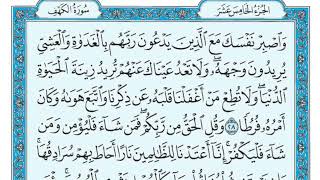 الجزء الخامس عشر
سورة الكهف
وَاصْبِرْ نَفْسَكَ مَعَ الَّذِينَ يَدْعُونَ رَبَّهُم بِالْغَدَوٰةِ وَالْعَشِيِّ
يُرِيدُونَ وَجْهَهُۥ وَلَا تَعْدُ عَيْنَاكَ عَنْهُمْ تُرِيدُ زِينَةَ الْحَيَوٰةِ
الدُّنْيَا وَلَا تُطِعْ مَنْ أَغْفَلْنَا قَلْبَهُۥ عَن ذِكْرِنَا وَاتَّبَعَ هَوَىٰهُ وَكَانَ
أَمْرُهُۥ فُرُطًا ٢٨ وَقُلِ الْحَقُّ مِن رَّبِّكُمْ فَمَن شَآءَ فَلْيُؤْمِن وَمَن
شَآءَ فَلْيَكْفُرْ إِنَّآ أَعْتَدْنَا لِلظَّالِمِينَ نَارًا أَحَاطَ بِهِمْ سُرَادِقُهَا